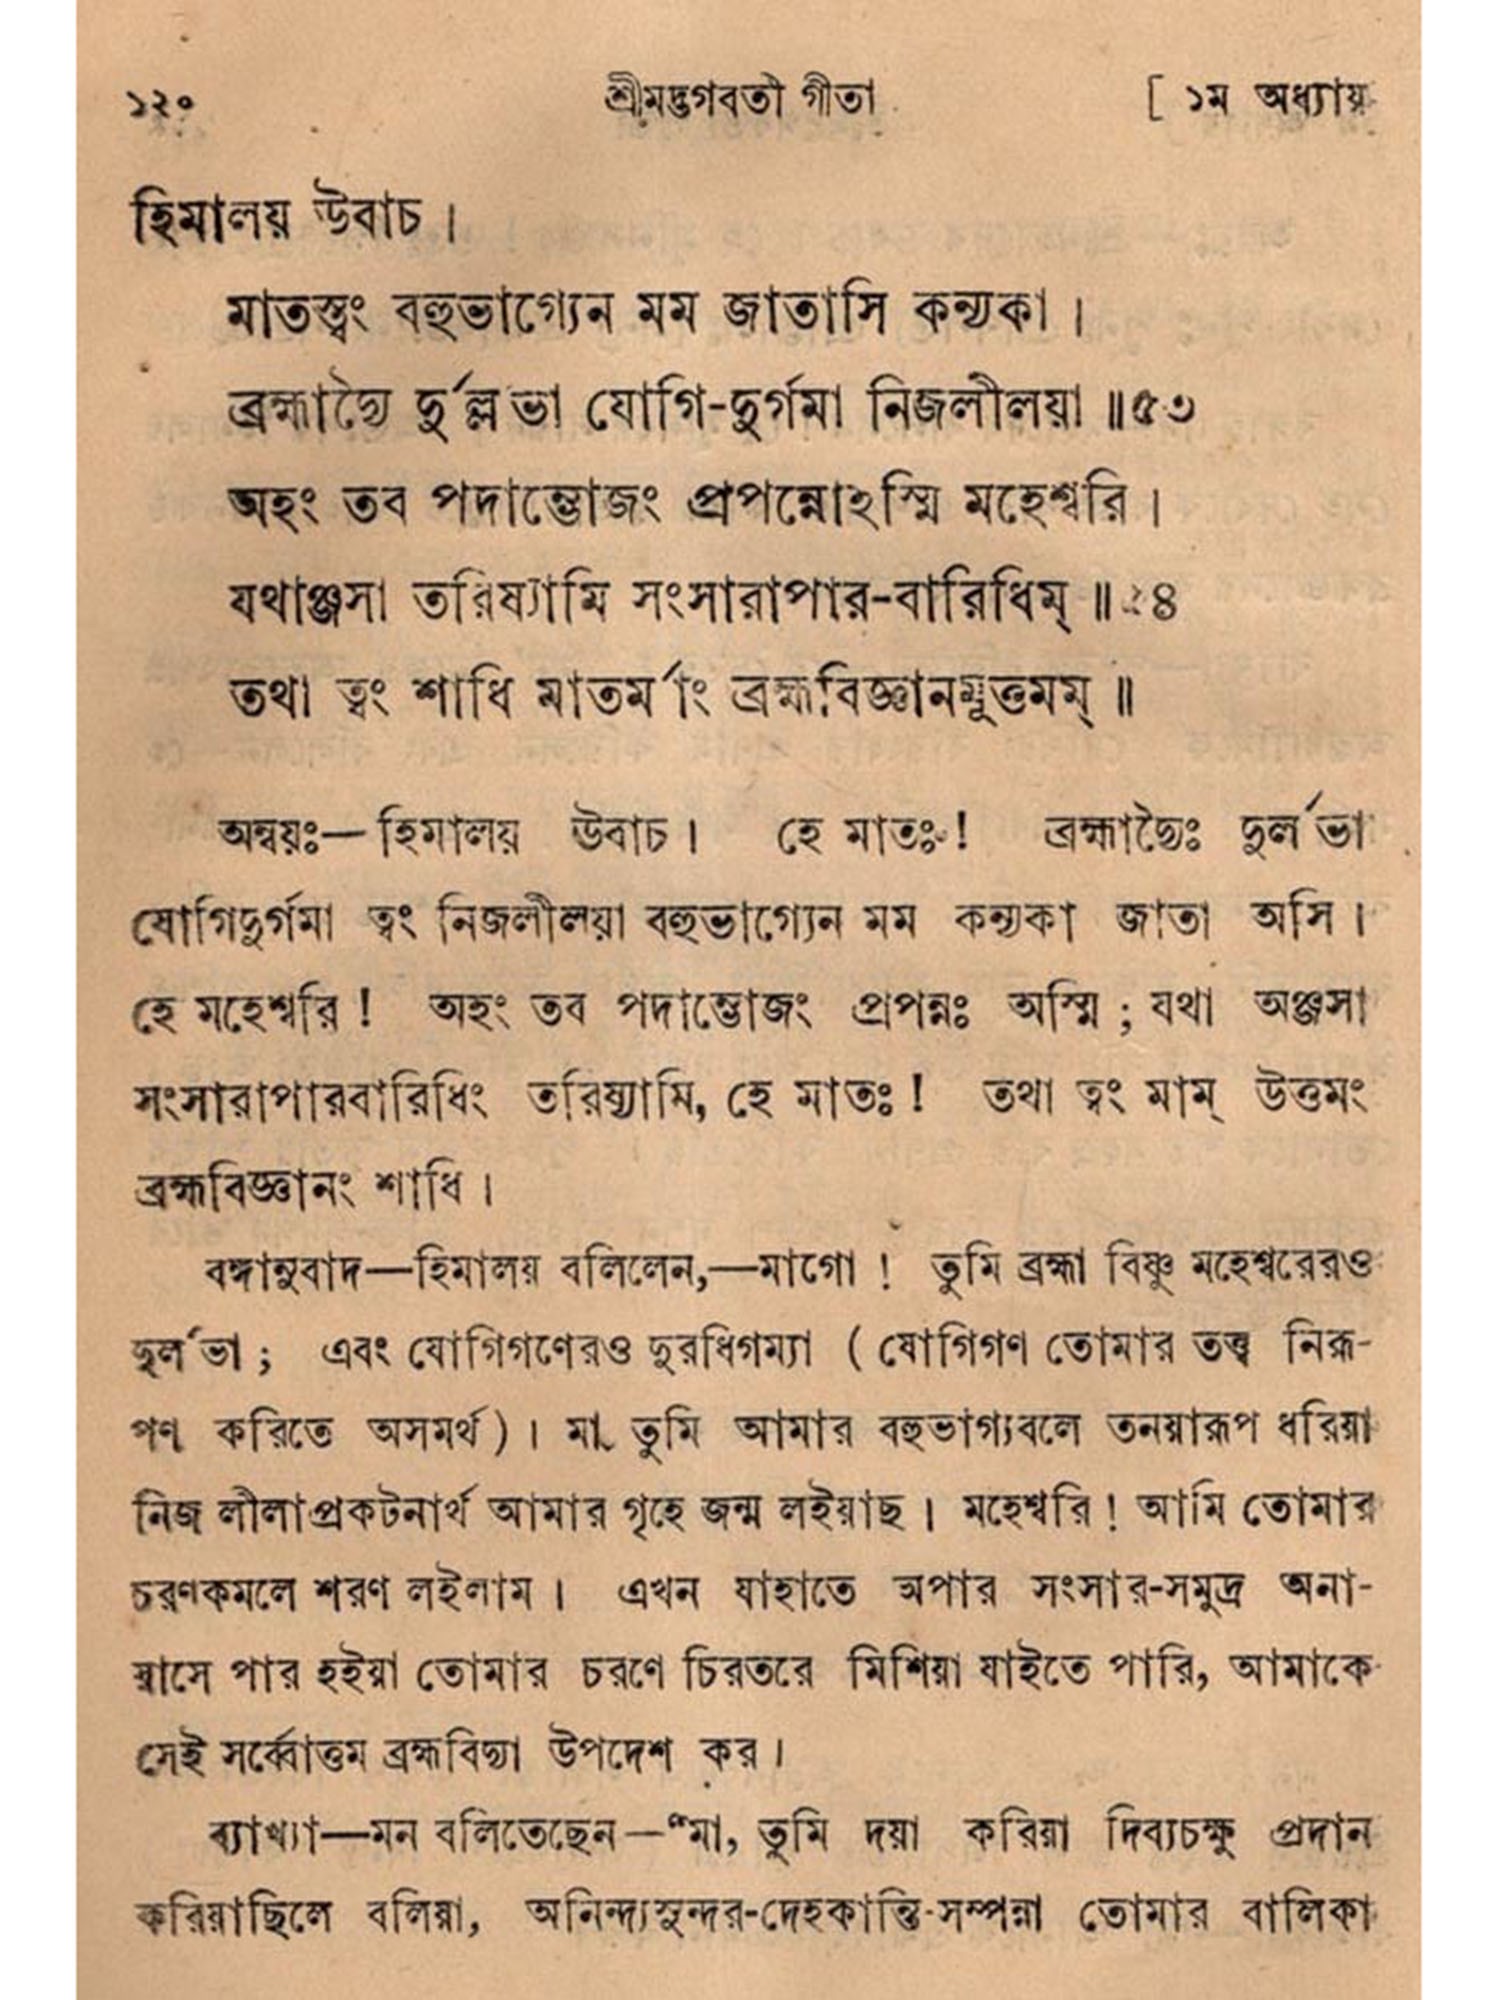 ১২০ শ্রীমদ্ভগবতী গীতা [ ১ম অধ্যায়
হিমালয় উবাচ ।
মাতস্ত্বং বহুভাগ্যেন মম জাতাসি কন্যকা ।
ব্রহ্মাদ্যৈ দুর্ল্লভা যোগি-দুর্গমা নিজলীলয়া ॥৫৩
অহং তব পদাম্ভোজং প্রপন্নোঽস্মি মহেশ্বরি ।
যথাঞ্জসা তরিষ্যামি সংসারাপার-বারিধিম্ ॥৫৪
তথা ত্বং শাধি মাতর্মাং ব্রহ্মবিজ্ঞানমুত্তমম্ ॥
অন্বয়ঃ—হিমালয় উবাচ । হে মাতঃ ! ব্রহ্মাদ্যৈঃ দুর্লভা
যোগিদুর্গমা ত্বং নিজলীলয়া বহুভাগ্যেন মম কন্যকা জাতা অসি ।
হে মহেশ্বরি ! অহং তব পদাম্ভোজং প্রপন্নঃ অস্মি ; যথা অঞ্জসা
সংসারাপারবারিধিং তরিষ্যামি, হে মাতঃ ! তথা ত্বং মাম্ উত্তমং
ব্রহ্মবিজ্ঞানং শাধি ।
বঙ্গানুবাদ—হিমালয় বলিলেন,—মাগো ! তুমি ব্রহ্মা বিষ্ণু মহেশ্বরেরও
দুর্লভা ; এবং যোগিগণেরও দুরধিগম্যা ( যোগিগণ তোমার তত্ত্ব নিরূ-
পণ করিতে অসমর্থ ) । মা তুমি আমার বহুভাগ্যবলে তনয়ারূপ ধরিয়া
নিজ লীলাপ্রকটনার্থ আমার গৃহে জন্ম লইয়াছ । মহেশ্বরি ! আমি তোমার
চরণকমলে শরণ লইলাম । এখন যাহাতে অপার সংসার-সমুদ্র অনা-
য়াসে পার হইয়া তোমার চরণে চিরতরে মিশিয়া যাইতে পারি, আমাকে
সেই সর্ব্বোত্তম ব্রহ্মবিদ্যা উপদেশ কর ।
ব্যাখ্যা—মন বলিতেছেন—“মা, তুমি দয়া করিয়া দিব্যচক্ষু প্রদান
করিয়াছিলে বলিয়া, অনিন্দ্যসুন্দর-দেহকান্তি-সম্পন্না তোমার বালিকা